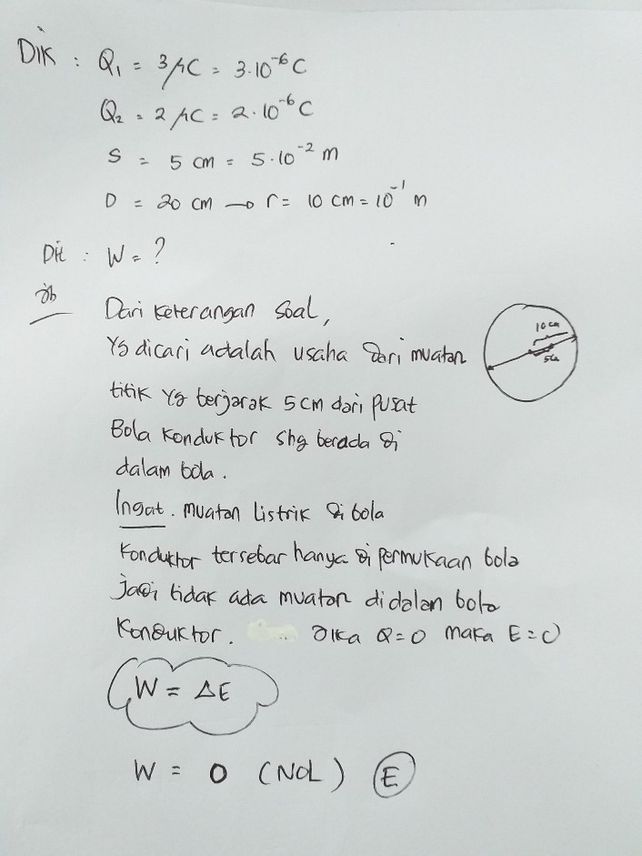 Dik : Q₁ = 3 μC = 3·10⁻⁶ C
Q₂ = 2 μC = 2·10⁻⁶ C
S = 5 cm = 5·10⁻² m
D = 20 cm → r = 10 cm = 10⁻¹ m
Dit : W = ?
Jb
Dari keterangan soal,
Yg dicari adalah usaha dari muatan
10 cm
5cm
titik yg berjarak 5 cm dari pusat
Bola konduktor shg berada di
dalam bola.
Ingat. muatan listrik di bola
konduktor tersebar hanya di permukaan bola
jadi tidak ada muatan didalan bola
konduktor. Jika Q=0 maka E=0
W = ΔE
W = 0 (NOL) E